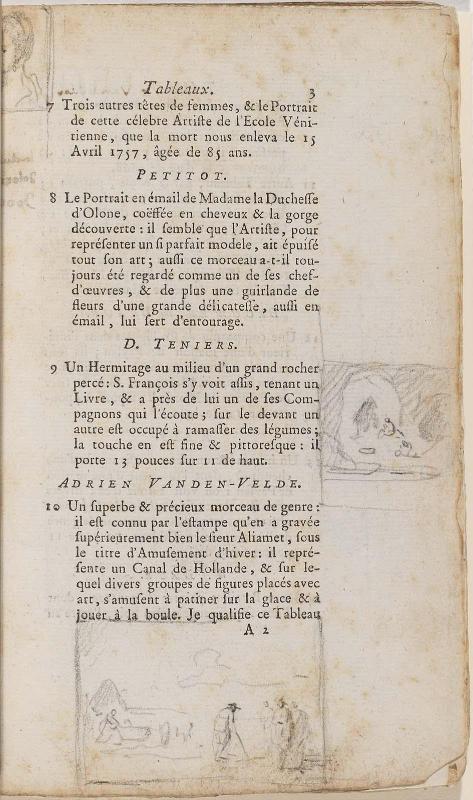 Tableaux. 3
7 Trois autres têtes de femmes, & le Portrait
de cette célebre Artiſte de l'Ecole Véni-
tienne, que la mort nous enleva le 15
Avril 1757, âgée de 85 ans.
PETITOT.
8 Le Portrait en émail de Madame la Ducheſſe
d'Olone, coëffée en cheveux & la gorge
découverte : il ſemble que l'Artiſte, pour
repréſenter un ſi parfait modele, ait épuiſé
tout ſon art ; auſſi ce morceau a-t-il tou-
jours été regardé comme un de ſes chef-
d'œuvres, & de plus une guirlande de
fleurs d'une grande délicateſſe, auſſi en
émail, lui ſert d'entourage.
D. TENIERS.
9 Un Hermitage au milieu d'un grand rocher
percé : S. François s'y voit aſſis, tenant un
Livre, & a près de lui un de ſes Com-
pagnons qui l'écoute ; ſur le devant un
autre eſt occupé à ramaſſer des légumes ;
la touche en eſt fine & pittoreſque : il
porte 13 pouces ſur 11 de haut.
ADRIEN VANDEN-VELDE.
10 Un ſuperbe & précieux morceau de genre :
il eſt connu par l'eſtampe qu'en a gravée
ſupérieurement bien le ſieur Aliamet, ſous
le titre d'Amuſement d'hiver : il repré-
ſente un Canal de Hollande, & ſur le-
quel divers groupes de figures placés avec
art, s'amuſent à patiner ſur la glace & à
jouer à la boule. Je qualifie ce Tableau
A 2